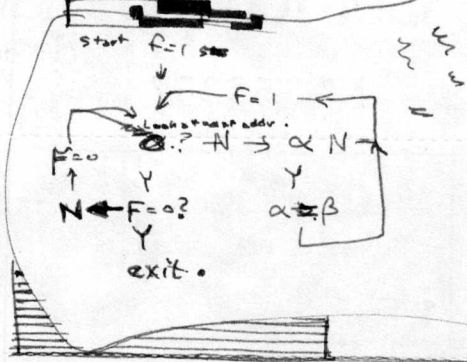 start
F=1
F=1
Look at next addr.
? N → α N
F=0
Y Y
N ← F=0? α β
Y
exit.